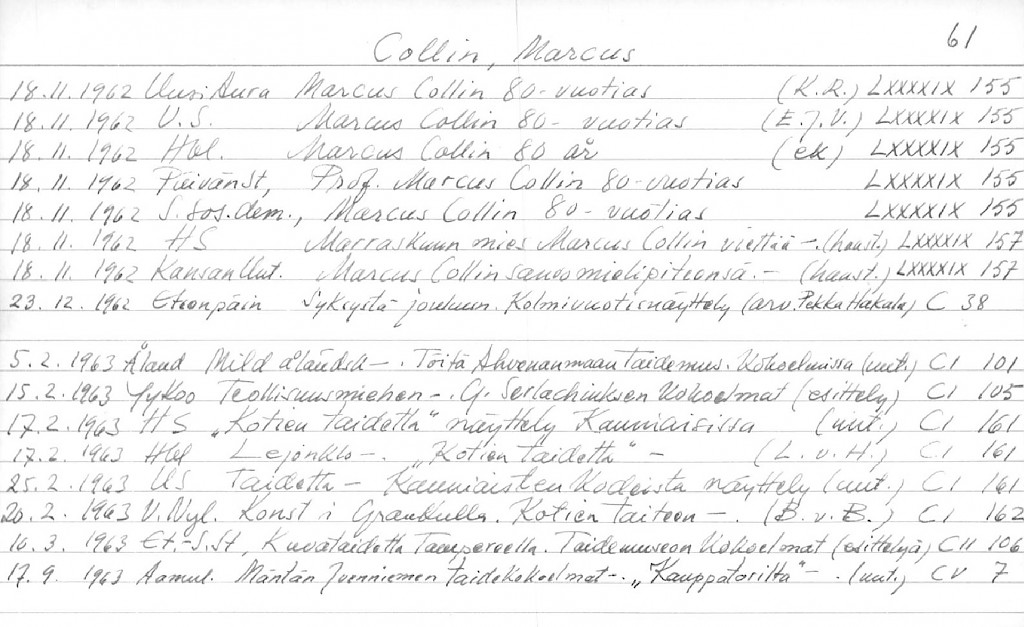 61
Collin, Marcus
18.11.1962 Uusi Aura Marcus Collin 80-vuotias (K.R.) LXXXXIX 155
18.11.1962 U.S. Marcus Collin 80-vuotias (E.J.V.) LXXXXIX 155
18.11.1962 Hbl. Marcus Collin 80 år (ek) LXXXXIX 155
18.11.1962 PäivänSt, Prof. Marcus Collin 80-vuotias LXXXXIX 155
18.11.1962 S.Sos.dem., Marcus Collin 80-vuotias LXXXXIX 155
18.11.1962 HS Marraskuun mies Marcus Collin viettää -. (haast.) LXXXXIX 157
18.11.1962 KansanUut. Marcus Collin sanoo mielipiteensä. - (haast.) LXXXXIX 157
23.12.1962 Eteenpäin Syksystä jouluun. Kolmivuotisnäyttely (arv. Pekka Hakala) C 38
5.2.1963 Åland Mild åländsk -. Töitä Ahvenanmaan taidemus. kokoelmissa (uut.) CI 101
15.2.1963 Jykoo Teollisuusmiehen -. G. Serlachiuksen kokoelmat (esittely) CI 105
17.2.1963 HS „Kotien taidetta" näyttely Kauniaisissa (uut.) CI 161
17.2.1963 Hbl Lejonklo -. „Kotien taidetta" - (L.v.H.) CI 161
25.2.1963 US Taidetta - Kauniaisten kodeista näyttely (uut.) CI 161
20.2.1963 V.Nyl. Konst i Grankulla. Kotien taiteen -. (B.v.B.) CI 162
16.3.1963 Et.-S.St, Kuvataidetta Tampereella. Taidemuseon kokoelmat (esittelyä) CII 106
17.9. 1963 Aamul. Mäntän Joenniemen taidekokoelmat -. „Kauppatorilta" -. (uut.) CV 7